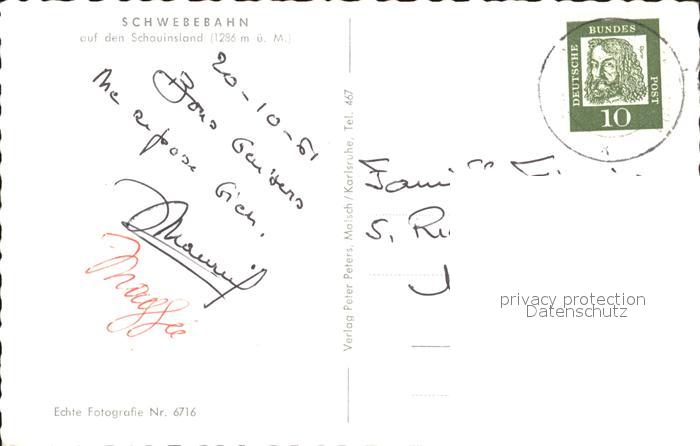 SCHWEBEBAHN
auf den Schauinsland (1286 m ü. M.)
20-10-61
Bons baisers
Me repose bien.
Maurice
Maggie
Echte Fotografie Nr. 6716
Verlag Peter Peters, Malsch/Karlsruhe, Tel. 467
DEUTSCHE BUNDES POST
Dürer
10
S. Ru
privacy protection
Datenschutz